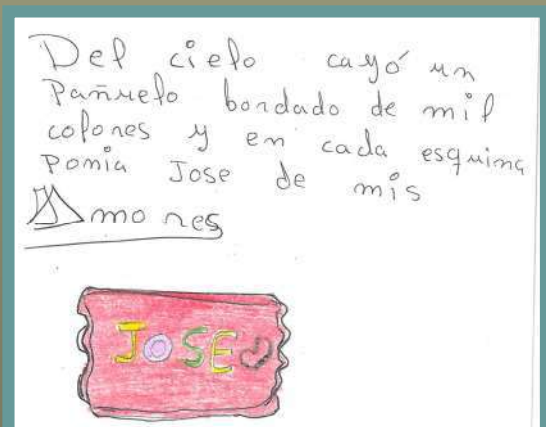 Del cielo cayó un
Pañuelo bordado de mil
colores y en cada esquina
Ponia Jose de mis
Amores
JOSE